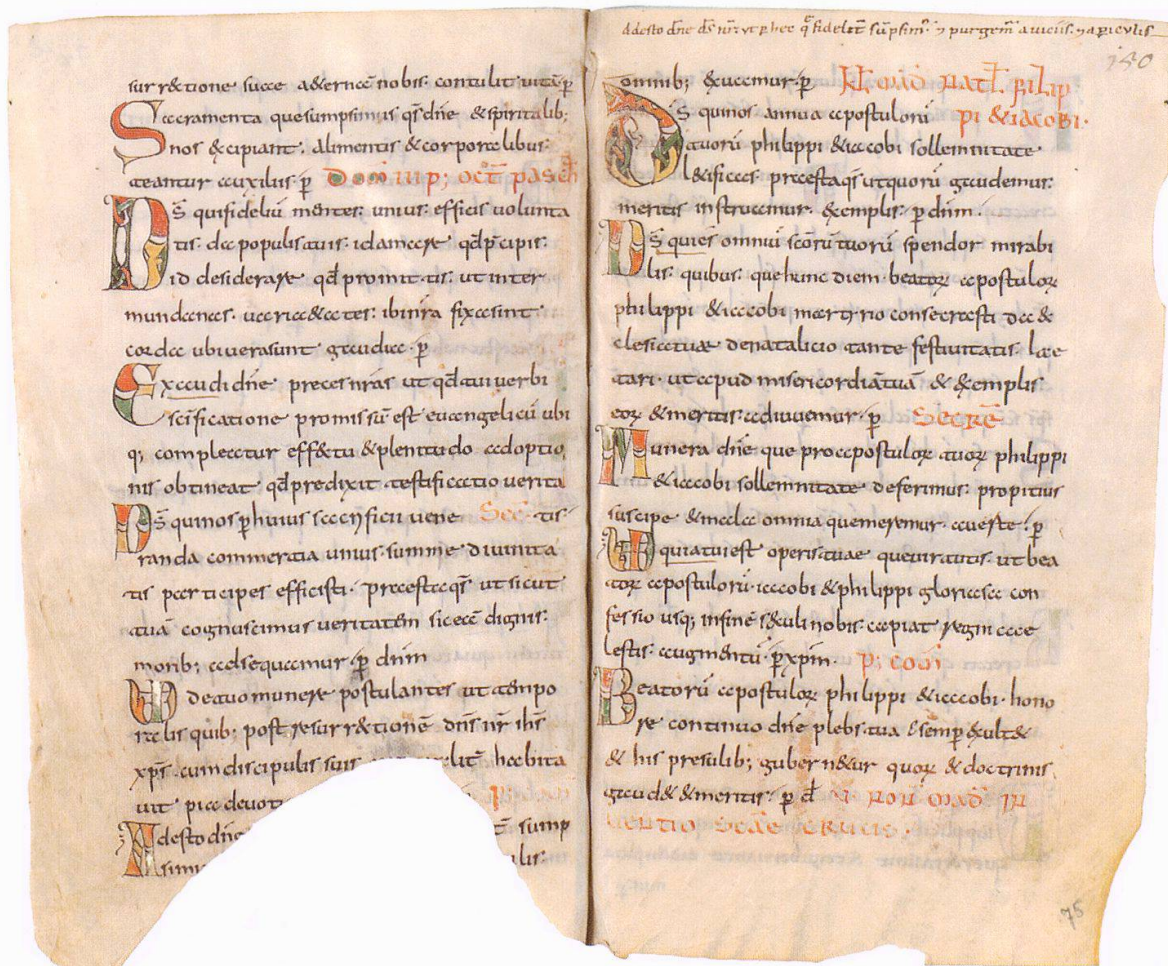 surr&tione sue a&erne nobis contulit uitā p̄
Sacramenta que sumpsimus q̄s dn̄e & spiritalib;
nos & cipiant. alimentis & corporalibus
teantur auxiliis p̄ Dom̄ IIII p; oct̄ pasch̄
Ds̄ qui fideliū mentes unius efficis uolunta
tis. da populis tuis. id amare qd̄ p̄cipis
id desiderare qd̄ promittis. ut inter
mundanas uarietates. ibi n̄ra fixa sint
corda ubi uera sunt gaudia. p̄
Exaudi dn̄e preces nr̄as ut qd̄ tui uerbi
sc̄ificatione promissū est euangelicū ubi
q; compleatur eff&tu & plenitudo adoptio
nis obtineat qd̄ predixit testificatio uerita
Ds̄ qui nos p̄ huius sacrificii uene Sec̄ tis
randa commertia unius summe diuinita
tis participes efficisti. praesta q̄s ut sicut
tuā cognuscimus ueritatem sic eā dignis
morib; adsequamur. p̄ dnm̄
UD De tuo munere postulantes ut tempo
ralis quib; post resurr&tionē dn̄s nr̄ ih̄s
xp̄s cum discipulis suis habita
uit pia deuot
Adesto dn̄e sump
simu ulis
Adesto dn̄e ds̄ nr̄ ut p hec q̄ fidelit̄ sūpsim̄ & purgem̄ a uiciis & a periculis
140
omnib; & uamur. p̄ Kl̄ mad̄ nat̄l filip
Ds̄ qui nos annua apostulorū pi & iacobi.
tuorū philippi & iacobi sollemnitate
l&ificas praesta q̄s ut quorū gaudemus
meritis instruamur. &emplis. p̄ dnm̄.
Ds̄ qui es omniū sc̄orū tuorū spendor mirabi
lis. quibus que hunc diem beatoꝝ apostuloꝝ
philippi & iacobi martyrio consecrasti da &
clesiae tuae de natalicio tante festiuitatis lae
tari. ut apud misericordiā tuā & &emplis
eoꝝ & meritis adiuuemur. p̄ Secrē
Munera dn̄e que pro apostuloꝝ tuoꝝ philippi
& iacobi sollemnitate deferimus propitius
suscipe & mala omnia que meremur auerte. p̄
UD quia tui est operis tuae que uirtutis. ut bea
toꝝ apostulorū iacobi & philippi gloriosa con
fessio usq; in finē s&culi nobis capiat regni cae
lestis augmentū. p̄ xp̄m. p; com̄
Beatorū apostuloꝝ philippi & iacobi. hono
re continuo dn̄e plebs tua semp̄ &ult&
& his presulib; gubern&ur quoꝝ & doctrinis
gaud& & meritis. p̄ d̄ V non mad̄ in
uentio sc̄ae crucis.
75